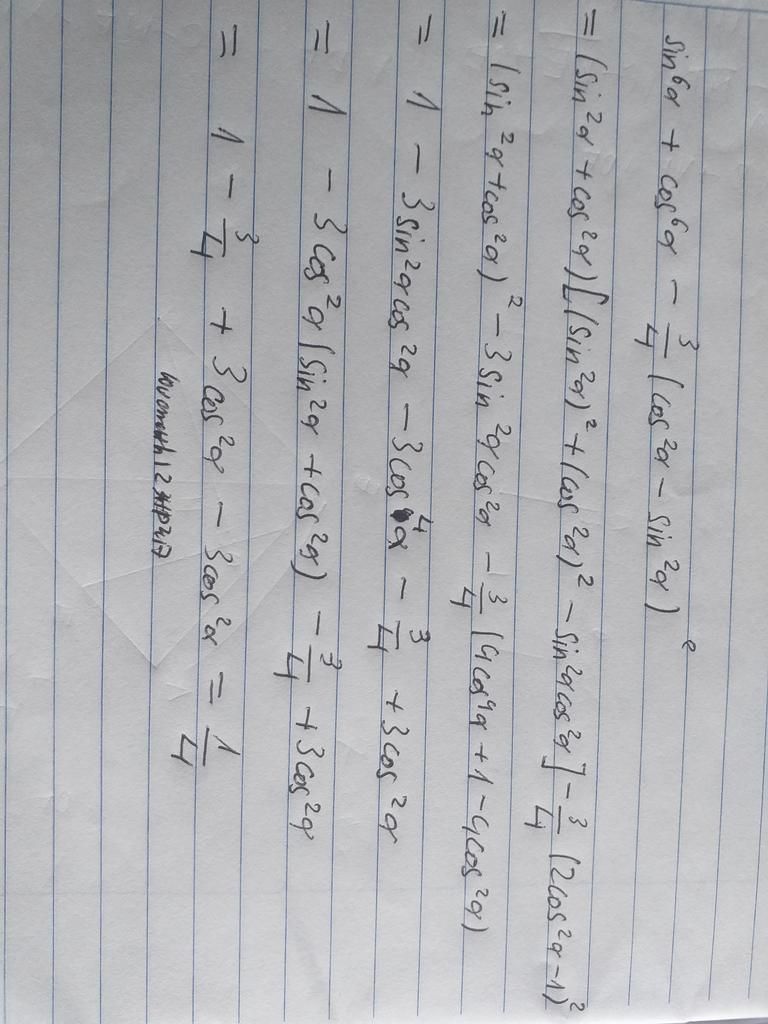 sin⁶α + cos⁶α − 3/4 (cos²α − sin²α)²
= (sin²α + cos²α)[(sin²α)² + (cos²α)² − sin²α cos²α] − 3/4 (2cos²α − 1)²
= (sin²α + cos²α)² − 3sin²α cos²α − 3/4 (4cos⁴α + 1 − 4cos²α)
= 1 − 3sin²α cos²α − 3cos⁴α − 3/4 + 3cos²α
= 1 − 3cos²α (sin²α + cos²α) − 3/4 + 3cos²α
= 1 − 3/4 + 3cos²α − 3cos²α = 1/4